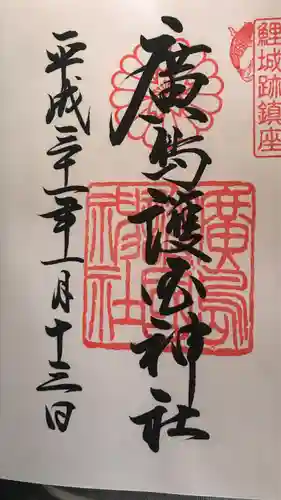 鯉城跡鎮座
廣島護国神社
廣島護國神社
平成三十一年一月十三日